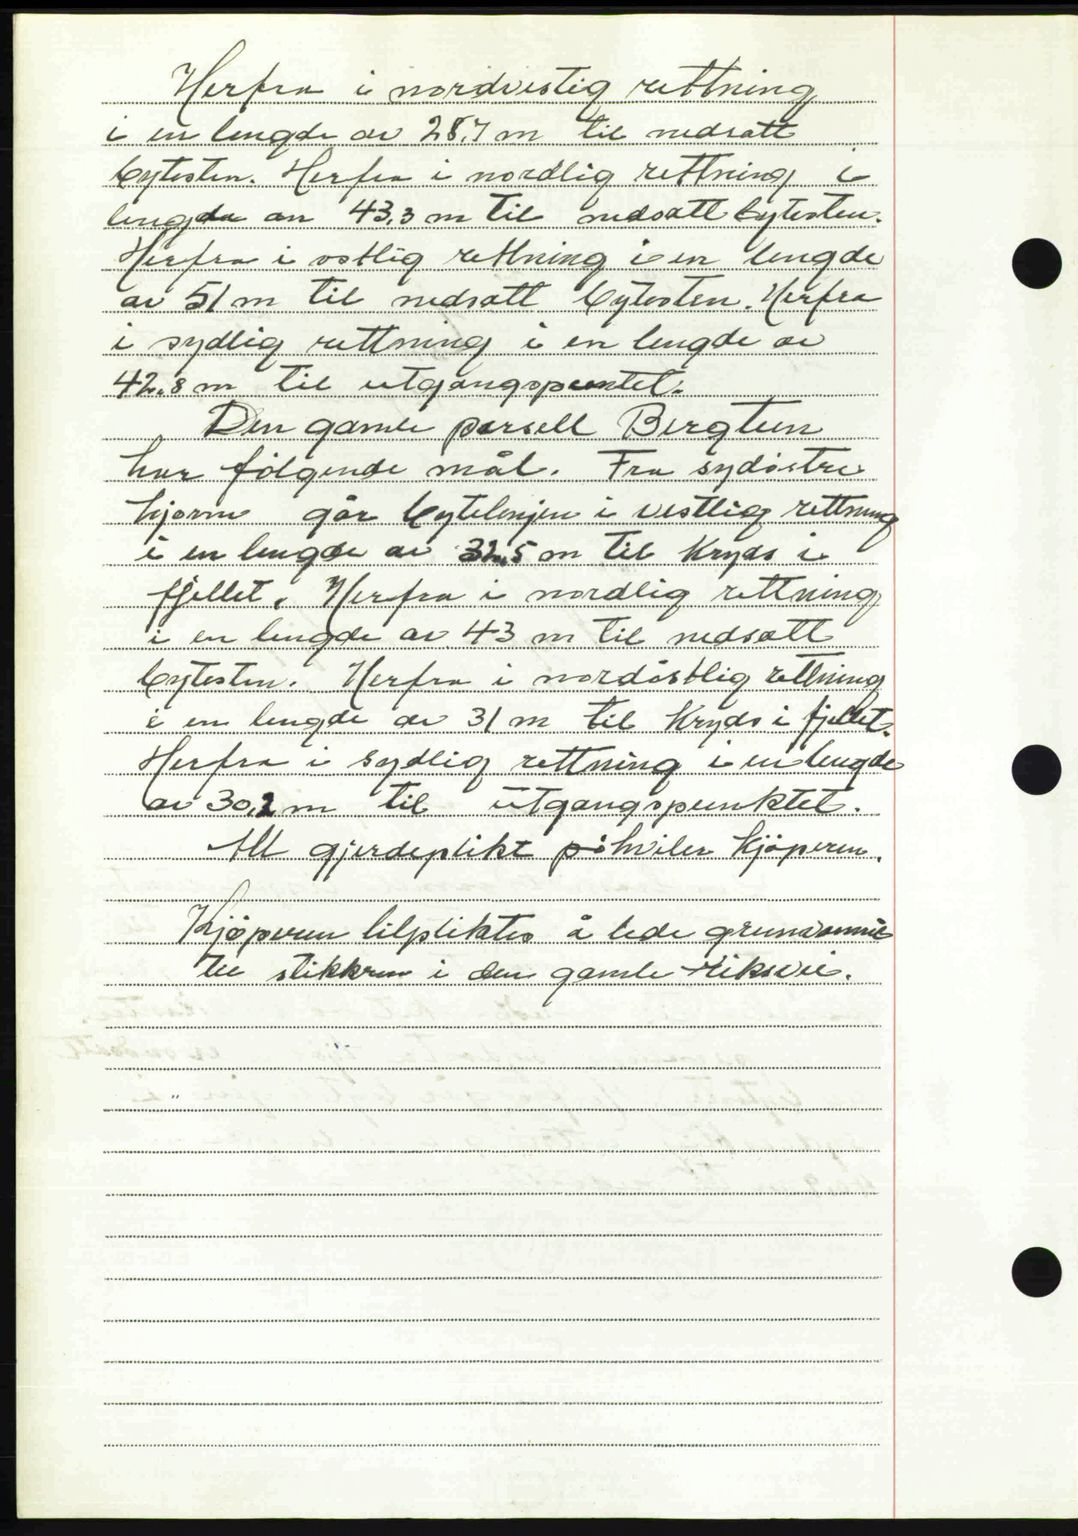 Herfra i nordvestig rettning
i en lengde av 28,7 m til nedsatt
bytesten. Herfra i nordlig rettning i
lengde av 43,3 m til nedsatt bytesten.
Herfra i ostlig rettning i en lengde
av 51 m til nedsatt bytesten. Herfra
i sydlig rettning i en lengde av
42,8 m til utgangspuntet.
Den gamle parsell Bergtun
har følgende mål. Fra sydöstre
hjørne går bytelinjen i vestlig rettning
i en lengde av 32,5 m til Kryds i
fjellet. Herfra i nordlig rettning
i en lengde av 43 m til nedsatt
bytesten. Herfra i nordöstlig rettning
i en lengde av 31 m til Kryds i fjellet.
Herfra i sydlig rettning i en lengde
av 30,2 m til utgangspunktet.
All gjerdeplikt påhviler kjöperen.
Kjöperen tilpliktes å lede grunvannet
til stikkren i den gamle riksvei.